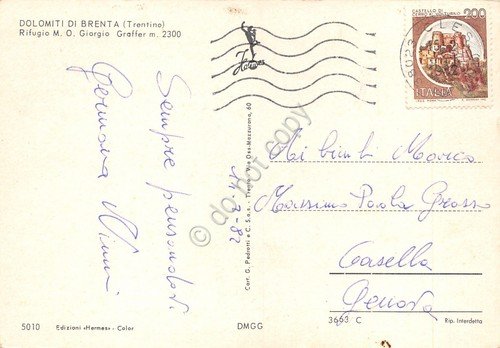 DOLOMITI DI BRENTA (Trentino)
Rifugio M. O. Giorgio Graffer m. 2300
Sempre pensandovi
Germana
11-9-82
Cart. G. Pedrotti e C. S.a.s. - Trento - Via Oss-Mazzurana, 60
200
CASTELLO DI
ITALIA
38023 CLES
Ai bimbi Marica
Massimo Paola Grosso
Casella
Genova
5010 Edizioni «Hermes» - Color
DMGG
3663 C
Rip. Interdetta
do not copy